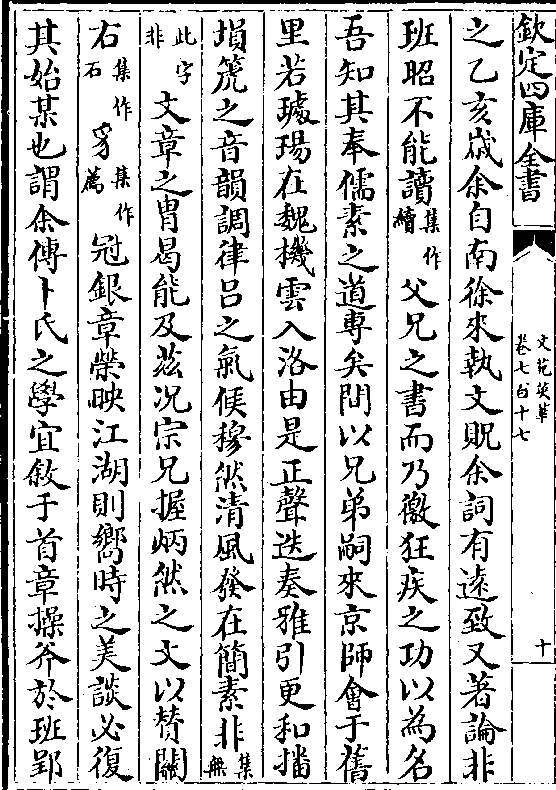 欽定四庫全書
文苑英華
卷七百十七
十
之乙亥歲余自南徐來執文貺余詞有遠致又著論非
班昭不能讀集作續父兄之書而乃徼狂疾之功以為名
吾知其奉儒素之道專矣間以兄弟嗣來京師會于舊
里若璩瑒在魏機雲入洛由是正聲迭奏雅引更和播
塤箎之音韻調律呂之氣候穆然清風發在簡素非集無
此字非文章之胄曷能及兹况宗兄握炳然之文以贊關
右集作石豸集作薦冠銀章榮映江湖則嚮時之美談必復
其始某也謂余傳卜氏之學宜敘于首章操斧於班郢